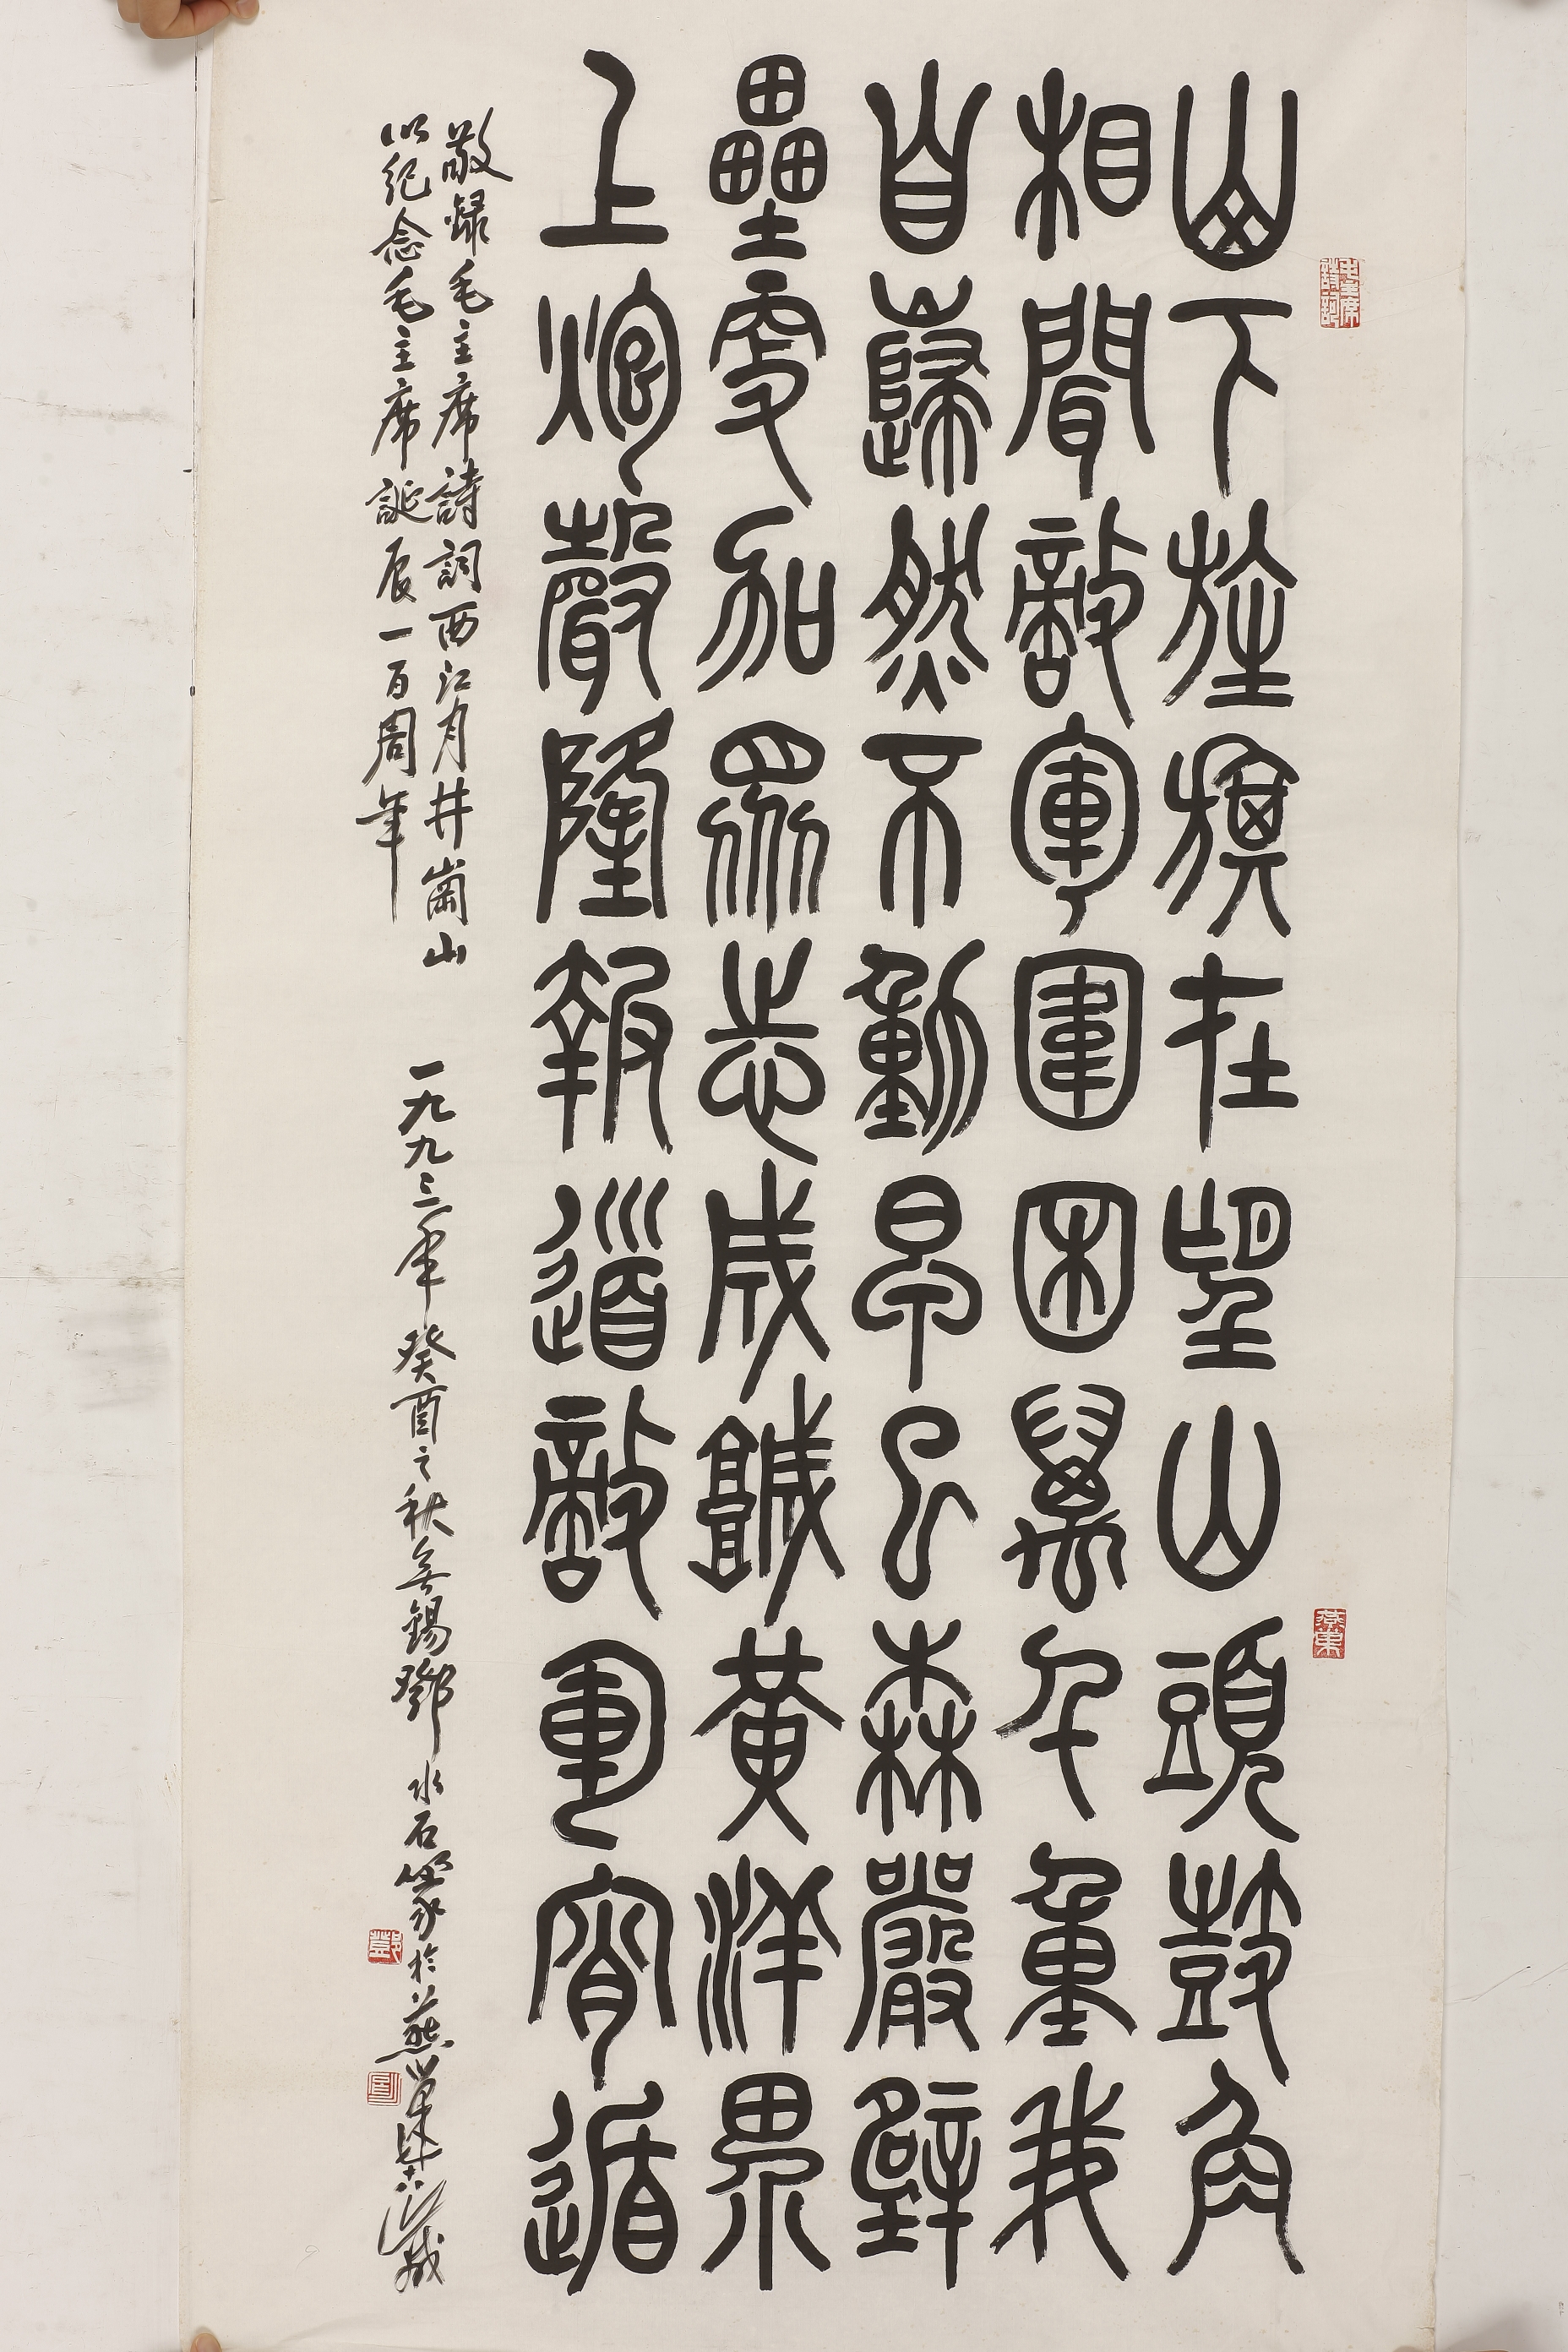 毛主席
詩詞
山下旌旗在望山頭鼓角
相聞敵軍圍困萬千重我
自巋然不動早已森嚴壁
壘更加眾志成城黃洋界
上炮聲隆報道敵軍宵遁
敬錄毛主席詩詞西江月井崗山
以紀念毛主席誕辰一百周年
一九九三年癸酉之秋無錫鄧水石篆於燕
鄧